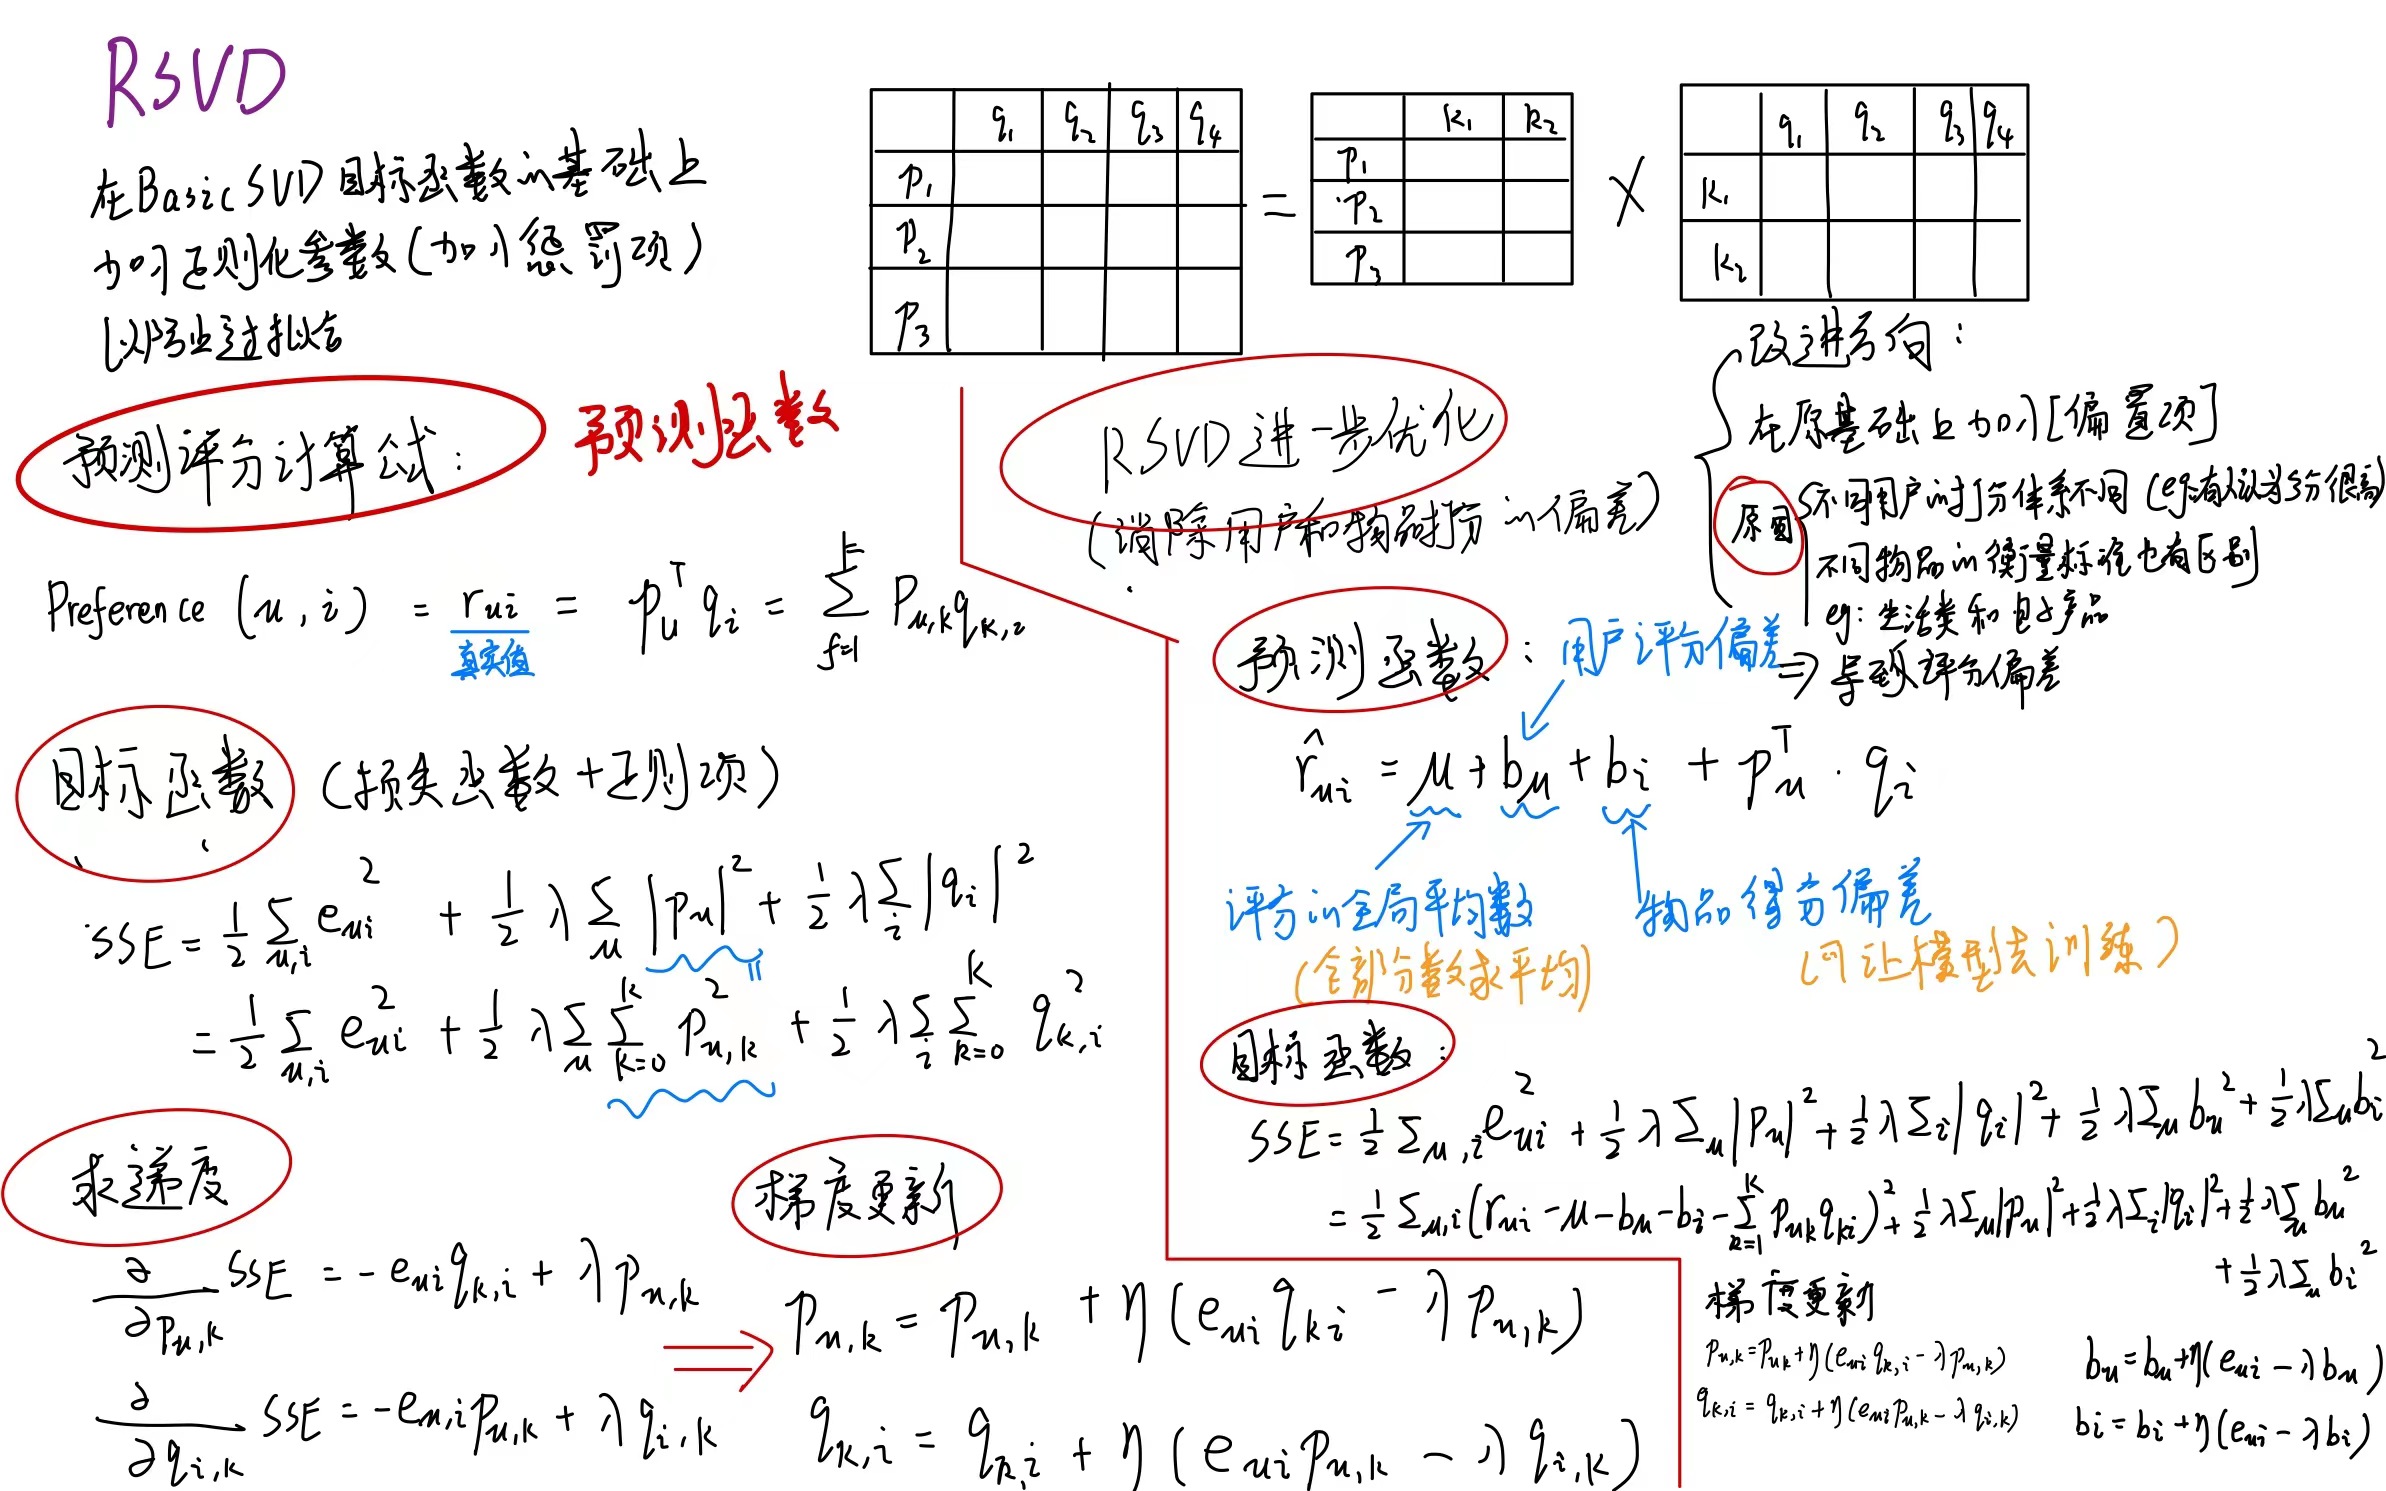 RSVD
在BasicSVD目标函数的基础上
加入正则化参数(加入惩罚项)
以防止过拟合
q₁ q₂ q₃ q₄
p₁
p₂
p₃
=
k₁ k₂
p₁
p₂
p₃
×
q₁ q₂ q₃ q₄
k₁
k₂
预测评分计算公式:
预测函数
Preference (u, i) = r_{ui} = p_u^T q_i = \sum_{f=1}^{F} P_{u,k} q_{k,i}
真实值
目标函数 (损失函数+正则项)
SSE = \frac{1}{2} \sum_{u,i} e_{ui}^2 + \frac{1}{2} λ \sum_u |p_u|^2 + \frac{1}{2} λ \sum_i |q_i|^2
= \frac{1}{2} \sum_{u,i} e_{ui}^2 + \frac{1}{2} λ \sum_u \sum_{k=0}^{k} p_{u,k}^2 + \frac{1}{2} λ \sum_i \sum_{k=0}^{k} q_{k,i}^2
求递度
\frac{∂}{∂p_{u,k}} SSE = -e_{ui} q_{k,i} + λ p_{u,k}
\frac{∂}{∂q_{i,k}} SSE = -e_{u,i} p_{u,k} + λ q_{i,k}
⇒
梯度更新
p_{u,k} = p_{u,k} + η (e_{ui} q_{ki} - λ p_{u,k})
q_{k,i} = q_{k,i} + η (e_{ui} p_{u,k} - λ q_{i,k})
RSVD进一步优化
(消除用户和物品打分的偏差)
改进方向:
在原基础上加入[偏置项]
原因
不同用户的打分体系不同 (eg:有人认为3分很高)
不同物品的衡量标准也有区别
eg: 生活类和电子产品
⇒ 导致评分偏差
预测函数:
用户评分偏差
\hat{r}_{ui} = μ + b_u + b_i + p_u^T · q_i
评分的全局平均数
(全部分数求平均)
物品得分偏差
(可让模型去训练)
目标函数:
SSE = \frac{1}{2} Σ_{u,i} e_{ui}^2 + \frac{1}{2} λ Σ_u |p_u|^2 + \frac{1}{2} λ Σ_i |q_i|^2 + \frac{1}{2} λ Σ_u b_u^2 + \frac{1}{2} λ Σ_u b_i^2
= \frac{1}{2} Σ_{u,i} (r_{ui} - μ - b_u - b_i - \sum_{k=1}^{K} p_{uk} q_{ki})^2 + \frac{1}{2} λ Σ_u |p_u|^2 + \frac{1}{2} λ Σ_i |q_i|^2 + \frac{1}{2} λ Σ_u b_u^2
+ \frac{1}{2} λ Σ_u b_i^2
梯度更新
p_{u,k} = p_{uk} + η (e_{ui} q_{k,i} - λ p_{u,k})
q_{k,i} = q_{k,i} + η (e_{ui} p_{u,k} - λ q_{i,k})
b_u = b_u + η (e_{ui} - λ b_u)
b_i = b_i + η (e_{ui} - λ b_i)